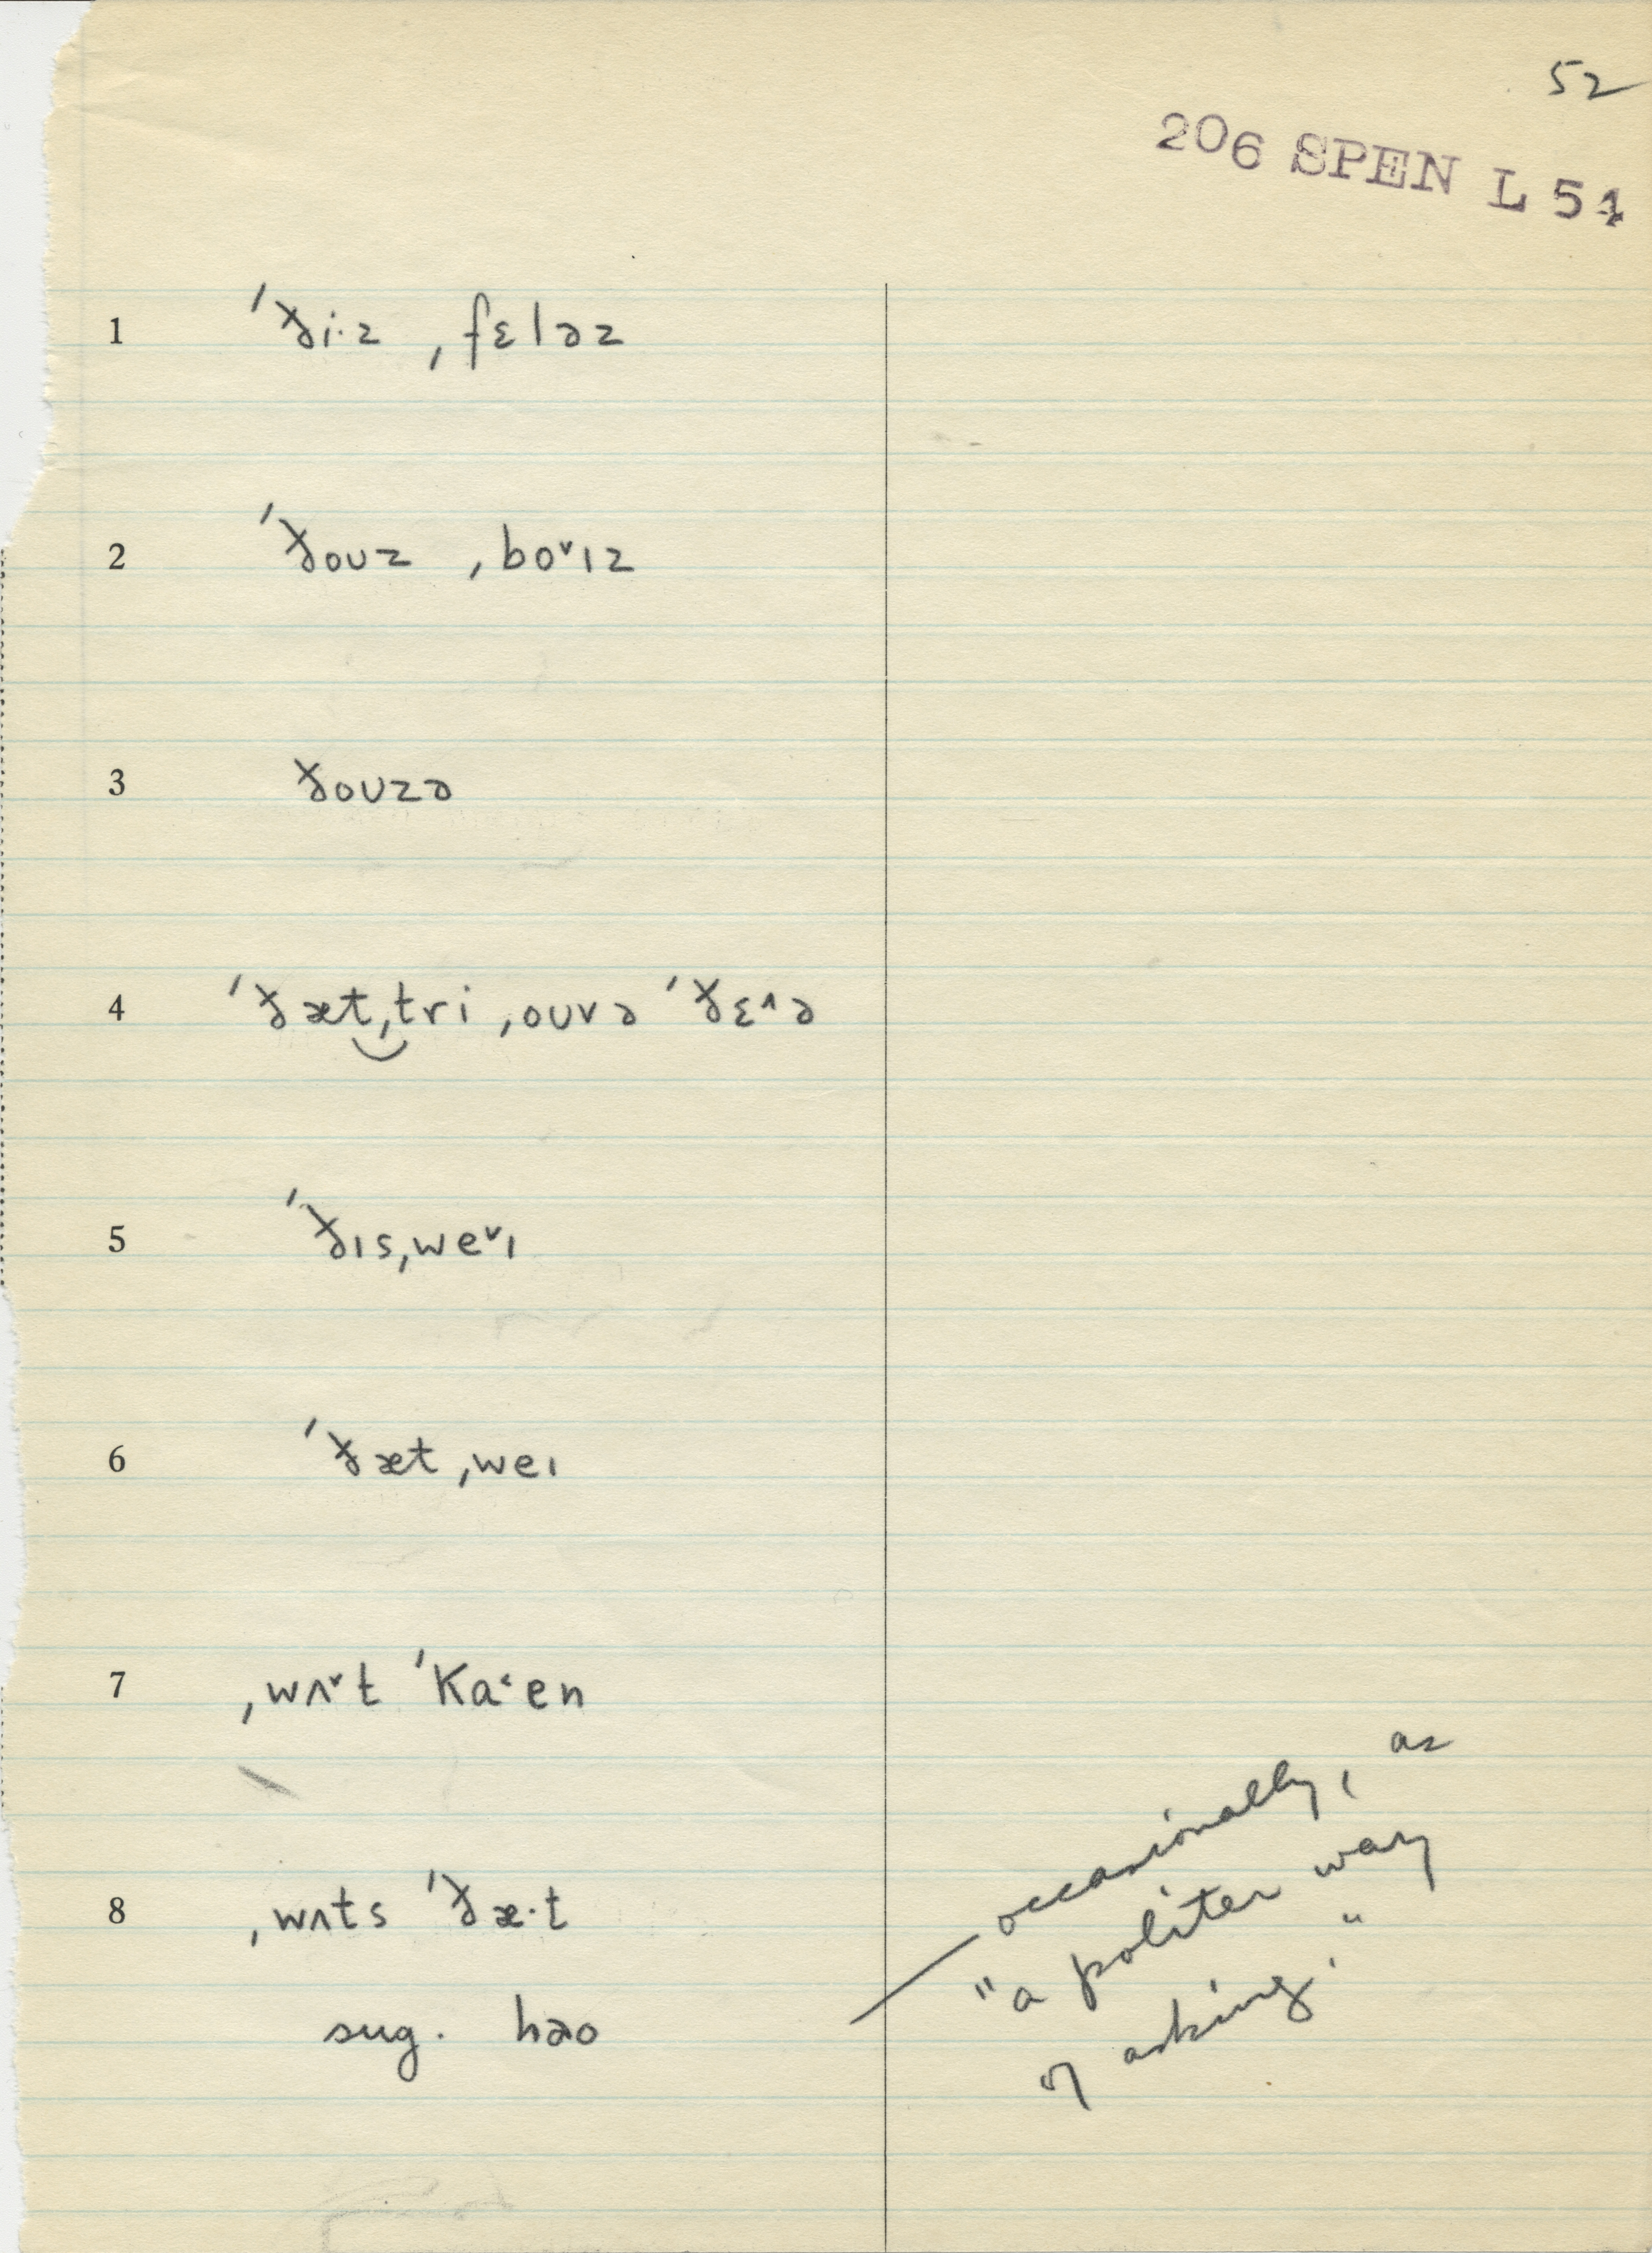 52
206 SPEN L 54
1 ˈðiˑz ˌfɛləz
2 ˈðoʊz ˌbo˅ɪz
3 ðoʊzə
4 ˈðæt‿ˌtri ˌoʊvə ˈðɛ˄ə
5 ˈðɪsˌwe˅ɪ
6 ˈðæt ˌweɪ
7 ˌwʌ˅t ˈka˂en
8 ˌwʌts ˈðæˑt
sug. hao
occasionally, as
"a politer way
of asking."